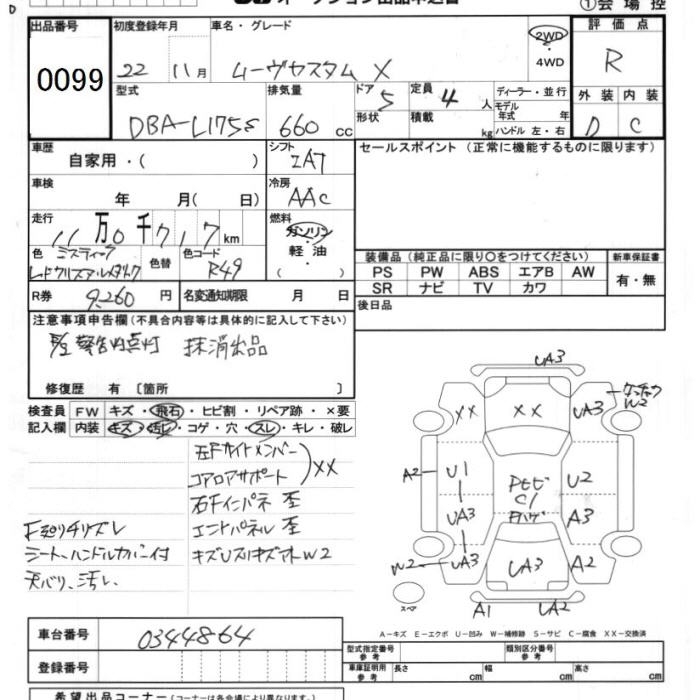 出品番号
0099
初度登録年月
22 11月
車名・グレード
ムーヴカスタム X
2WD
・
4WD
評価点
R
型式
DBA-L175S
排気量
660 cc
ドア 5
形状
定員 4 人
積載 kg
ディーラー・並行
モデル
年式 年
ハンドル 左・右
外装 内装
D C
車歴
自家用・( )
シフト
IAT
セールスポイント (正常に機能するものに限ります)
車検
年 月( 日)
冷房
AAC
走行
11万0千717km
燃料
ガソリン
軽・油
( )
色 ミスティック
レッドクリスタルメタリック
色替
色コード
R49
装備品 (純正品に限り○をつけてください)
新車保証書
PS PW ABS エアB AW
SR ナビ TV カワ
有・無
R券 9,260 円
名変通知期限 月 日
後日品
注意事項申告欄(不具合内容等は具体的に記入して下さい)
警告灯点灯 抹消出品
修復歴 有 〔箇所 〕
検査員
記入欄
FW キズ・飛石・ヒビ割・リペア跡・×要
内装 キズ・汚レ・コゲ・穴・スレ・キレ・破レ
左Fサイドメンバー
コアロアサポート
XX
右Fインパネ 歪
エンドパネル 歪
キズUスリキズオW2
F廻りチリズレ
シート、ハンドルカバー付
天バリ、汚レ、
UA3
XX
XX
UA3
W2
A2
U1
UA3
U2
A3
C1
Fハゲ
W2
UA3
UA3
A2
スペア
A1
UA2
A-キズ E-エクボ U-凹み W-補修跡 S-サビ C-腐食 XX-交換済
車台番号
0344864
登録番号
型式指定番号
参考
類別区分番号
参考
車庫証明用
参考
長さ cm 幅 cm 高さ cm
希望出品コーナー (コーナーは各会場により異なります。)